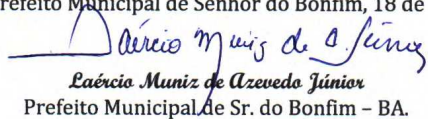 Prefeito Municipal de Senhor do Bonfim, 18 de
Laércio Muniz de A. Júnior
Laércio Muniz de Azevedo Júnior
Prefeito Municipal de Sr. do Bonfim – BA.